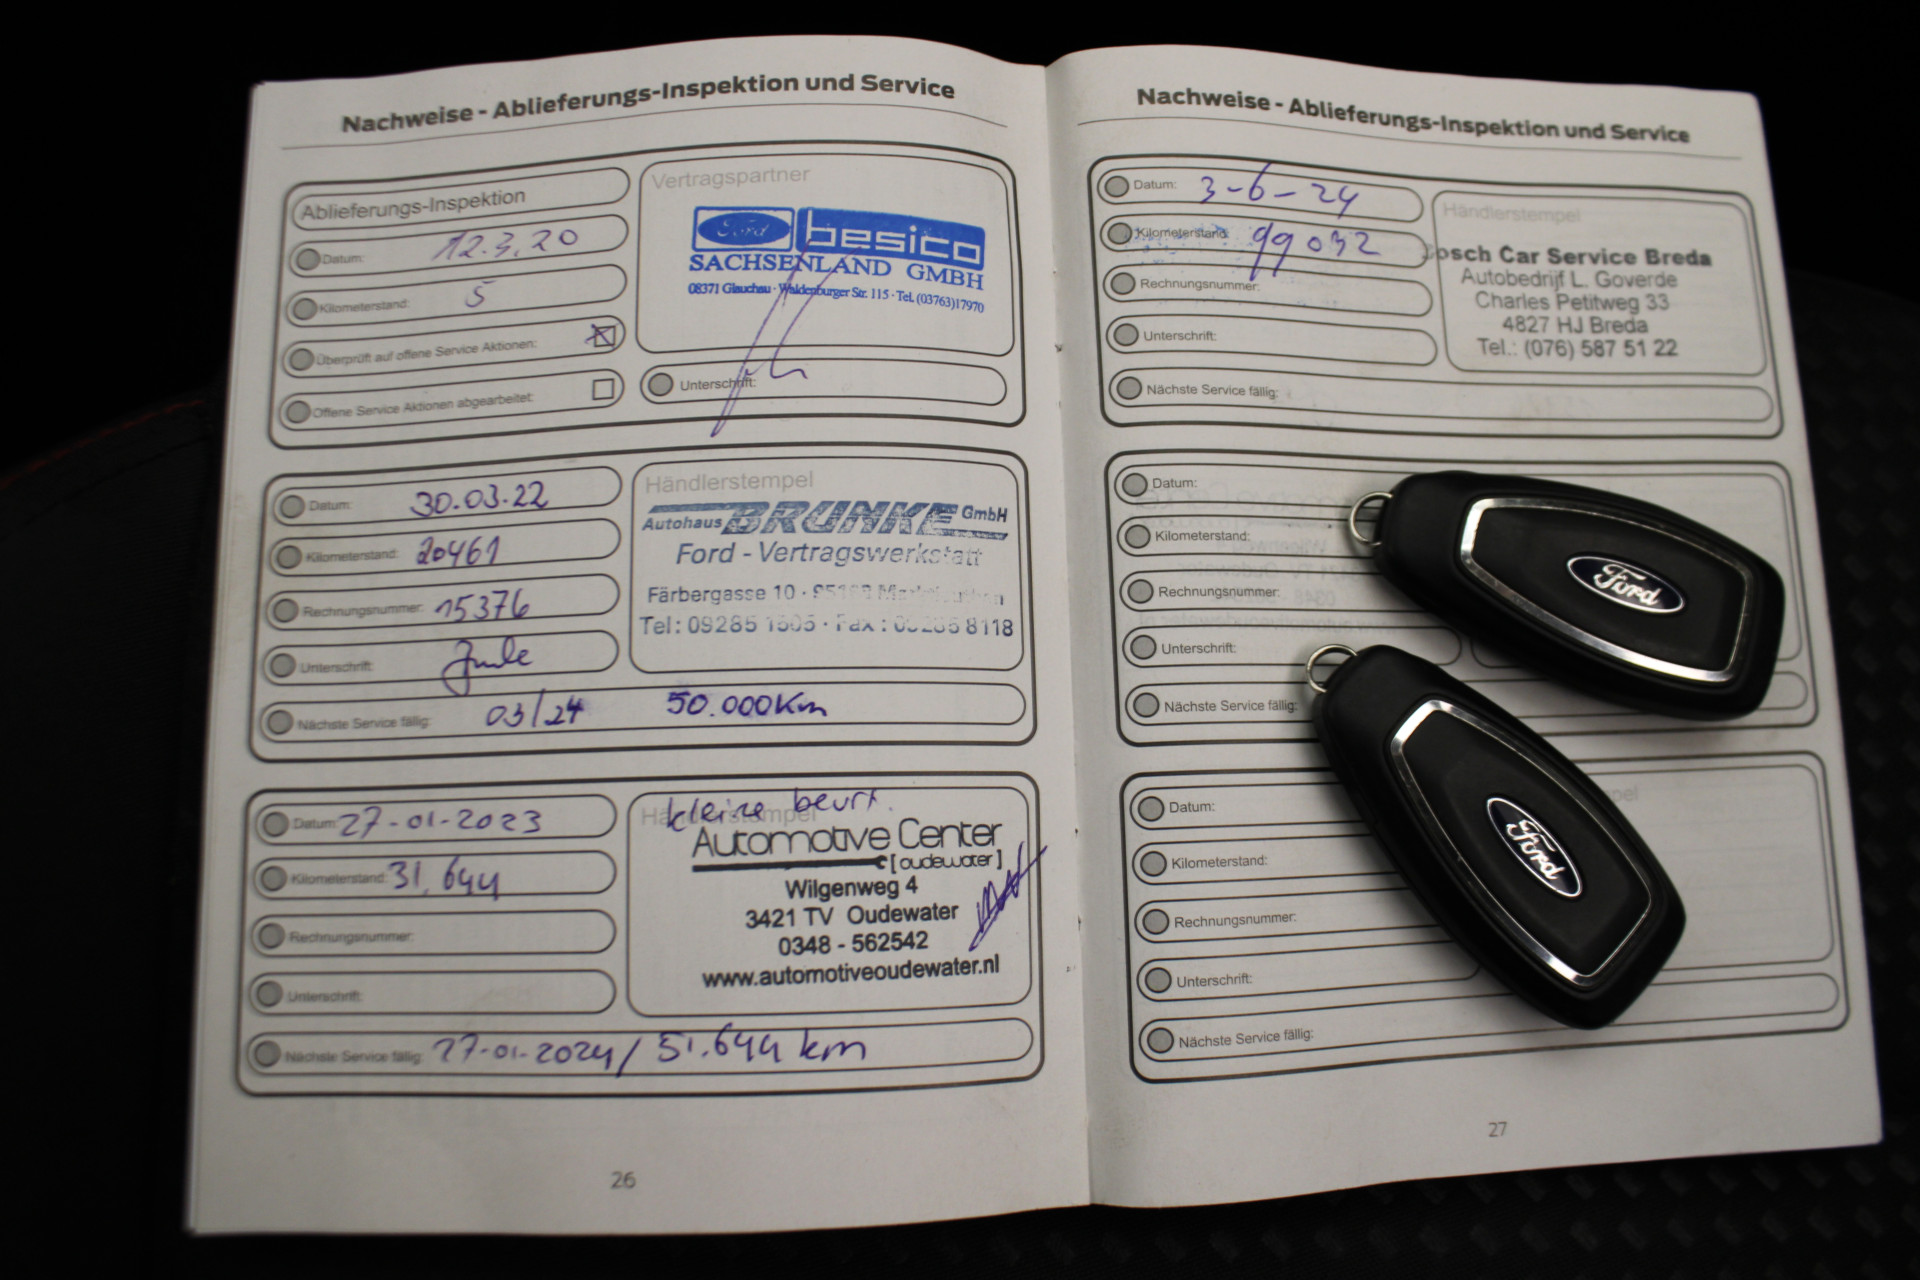 Nachweise - Ablieferungs-Inspektion und Service
Ablieferungs-Inspektion
Datum: 12.3.20
Kilometerstand: 5
Überprüft auf offene Service Aktionen:
Offene Service Aktionen abgearbeitet:
Vertragspartner
Ford besico
SACHSENLAND GMBH
08371 Glauchau · Waldenburger Str. 115 · Tel. (03763)17970
Unterschrift:
Datum: 30.03.22
Kilometerstand: 20461
Rechnungsnummer: 15376
Unterschrift:
Nächste Service fällig: 03/24 50.000Km
Händlerstempel
Autohaus BRUNKE GmbH
Ford - Vertragswerkstatt
Färbergasse 10
Tel: 09285 Fax: 8118
Datum: 27-01-2023
Kilometerstand: 31.644
Rechnungsnummer:
Unterschrift:
Nächste Service fällig: 27-01-2024 / 51.644 km
Händlerstempel
kleine beurt.
Automotive Center
[oudewater]
Wilgenweg 4
3421 TV Oudewater
0348 - 562542
www.automotiveoudewater.nl
26
Nachweise - Ablieferungs-Inspektion und Service
Datum: 3-6-24
Kilometerstand: 99032
Rechnungsnummer:
Unterschrift:
Nächste Service fällig:
Händlerstempel
Bosch Car Service Breda
Autobedrijf L. Goverde
Charles Petitweg 33
4827 HJ Breda
Tel.: (076) 587 51 22
Datum:
Kilometerstand:
Rechnungsnummer:
Unterschrift:
Nächste Service fällig:
Datum:
Kilometerstand:
Rechnungsnummer:
Unterschrift:
Nächste Service fällig:
27
Ford
Ford